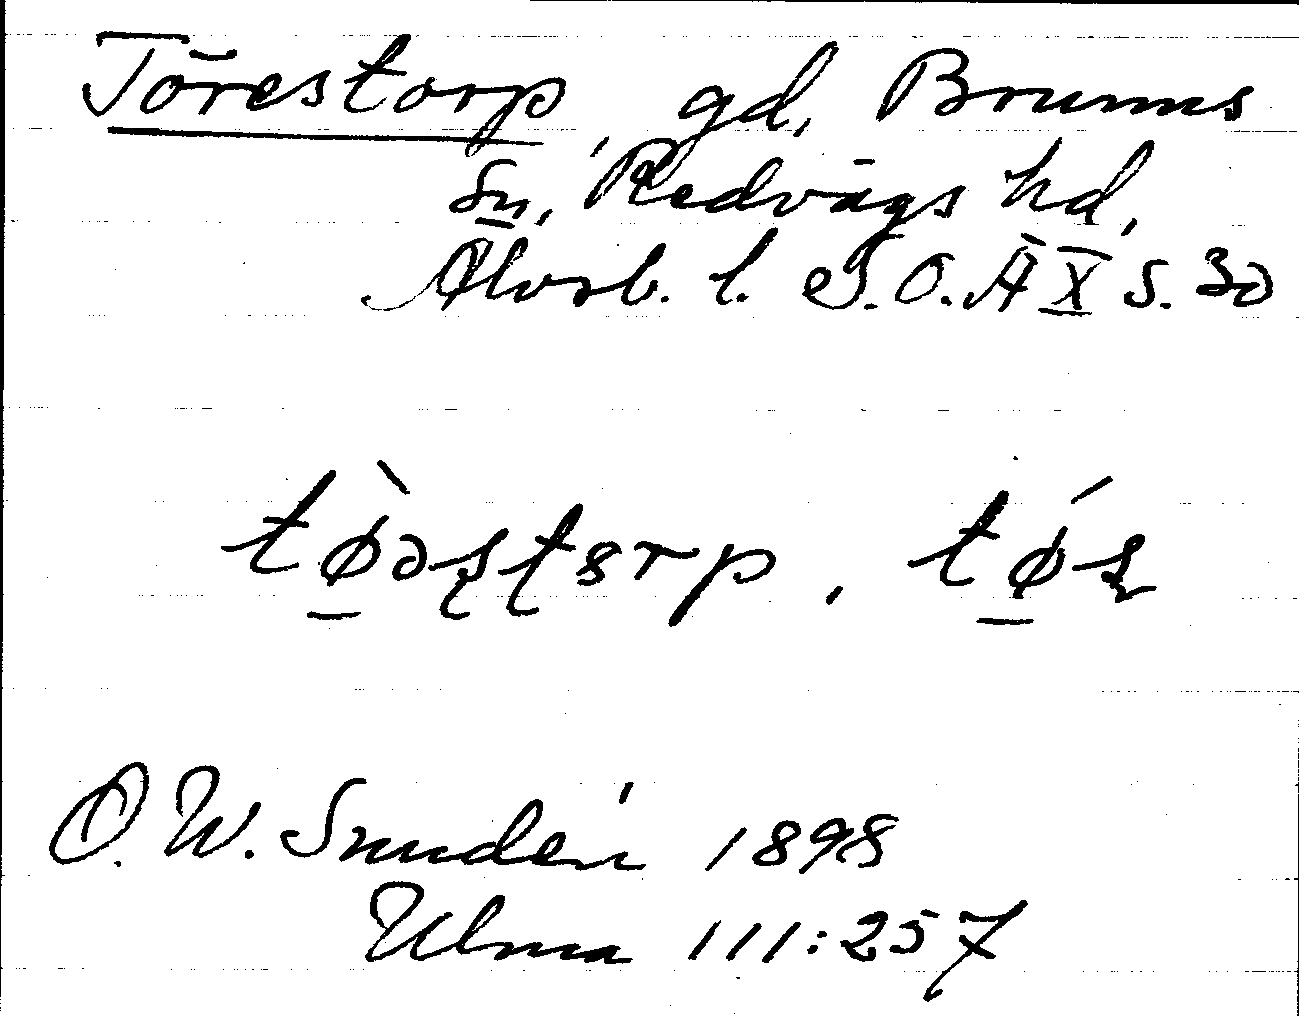 Törestorp, gd, Brunns
sn, Redvägs hd,
Älvsb. l. S.O.Ä X S. 30
tø̠̀əʂʈɞrp, tǿ̠ʂ
O. W. Sundén 1898
Ulma 111:257